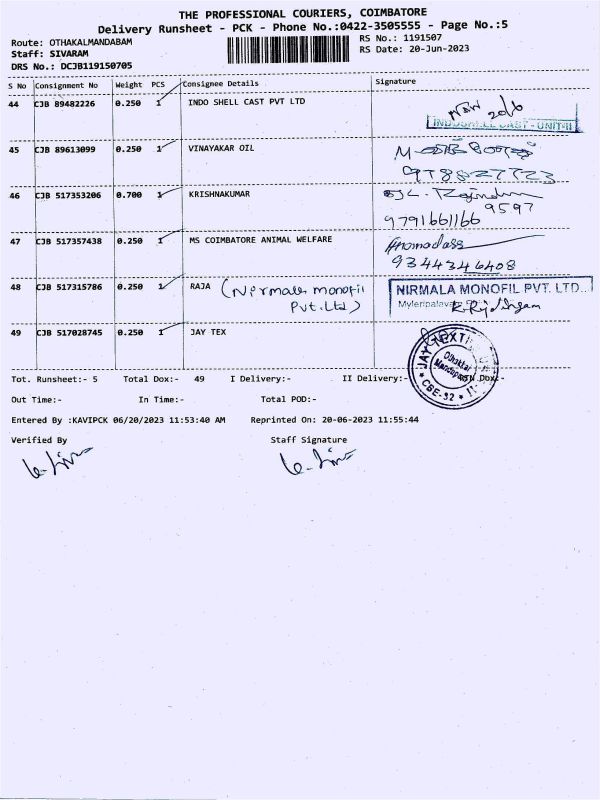 THE PROFESSIONAL COURIERS, COIMBATORE
Delivery Runsheet - PCK - Phone No.:0422-3505555 - Page No.:5
Route: OTHAKALMANDABAM
RS No.: 1191507
Staff: SIVARAM
RS Date: 20-Jun-2023
DRS No.: DCJB119150705
S No Consignment No Weight PCS Consignee Details Signature
44 CJB 89482226 0.250 1 INDO SHELL CAST PVT LTD
20/6
INDOSHELL CAST - UNIT-II
45 CJB 89613099 0.250 1 VINAYAKAR OIL
46 CJB 517353206 0.700 1 KRISHNAKUMAR
9597
9791661166
47 CJB 517357438 0.250 1 MS COIMBATORE ANIMAL WELFARE
9344346408
48 CJB 517315786 0.250 1 RAJA (Nirmala monofil
Pvt.Ltd)
NIRMALA MONOFIL PVT. LTD..
Myleripalayam
49 CJB 517028745 0.250 1 JAY TEX
Othakkal
Mandapam
CBE-32
Tot. Runsheet:- 5 Total Dox:- 49 I Delivery:- II Delivery:- Dox:-
Out Time:- In Time:- Total POD:-
Entered By :KAVIPCK 06/20/2023 11:53:40 AM Reprinted On: 20-06-2023 11:55:44
Verified By Staff Signature